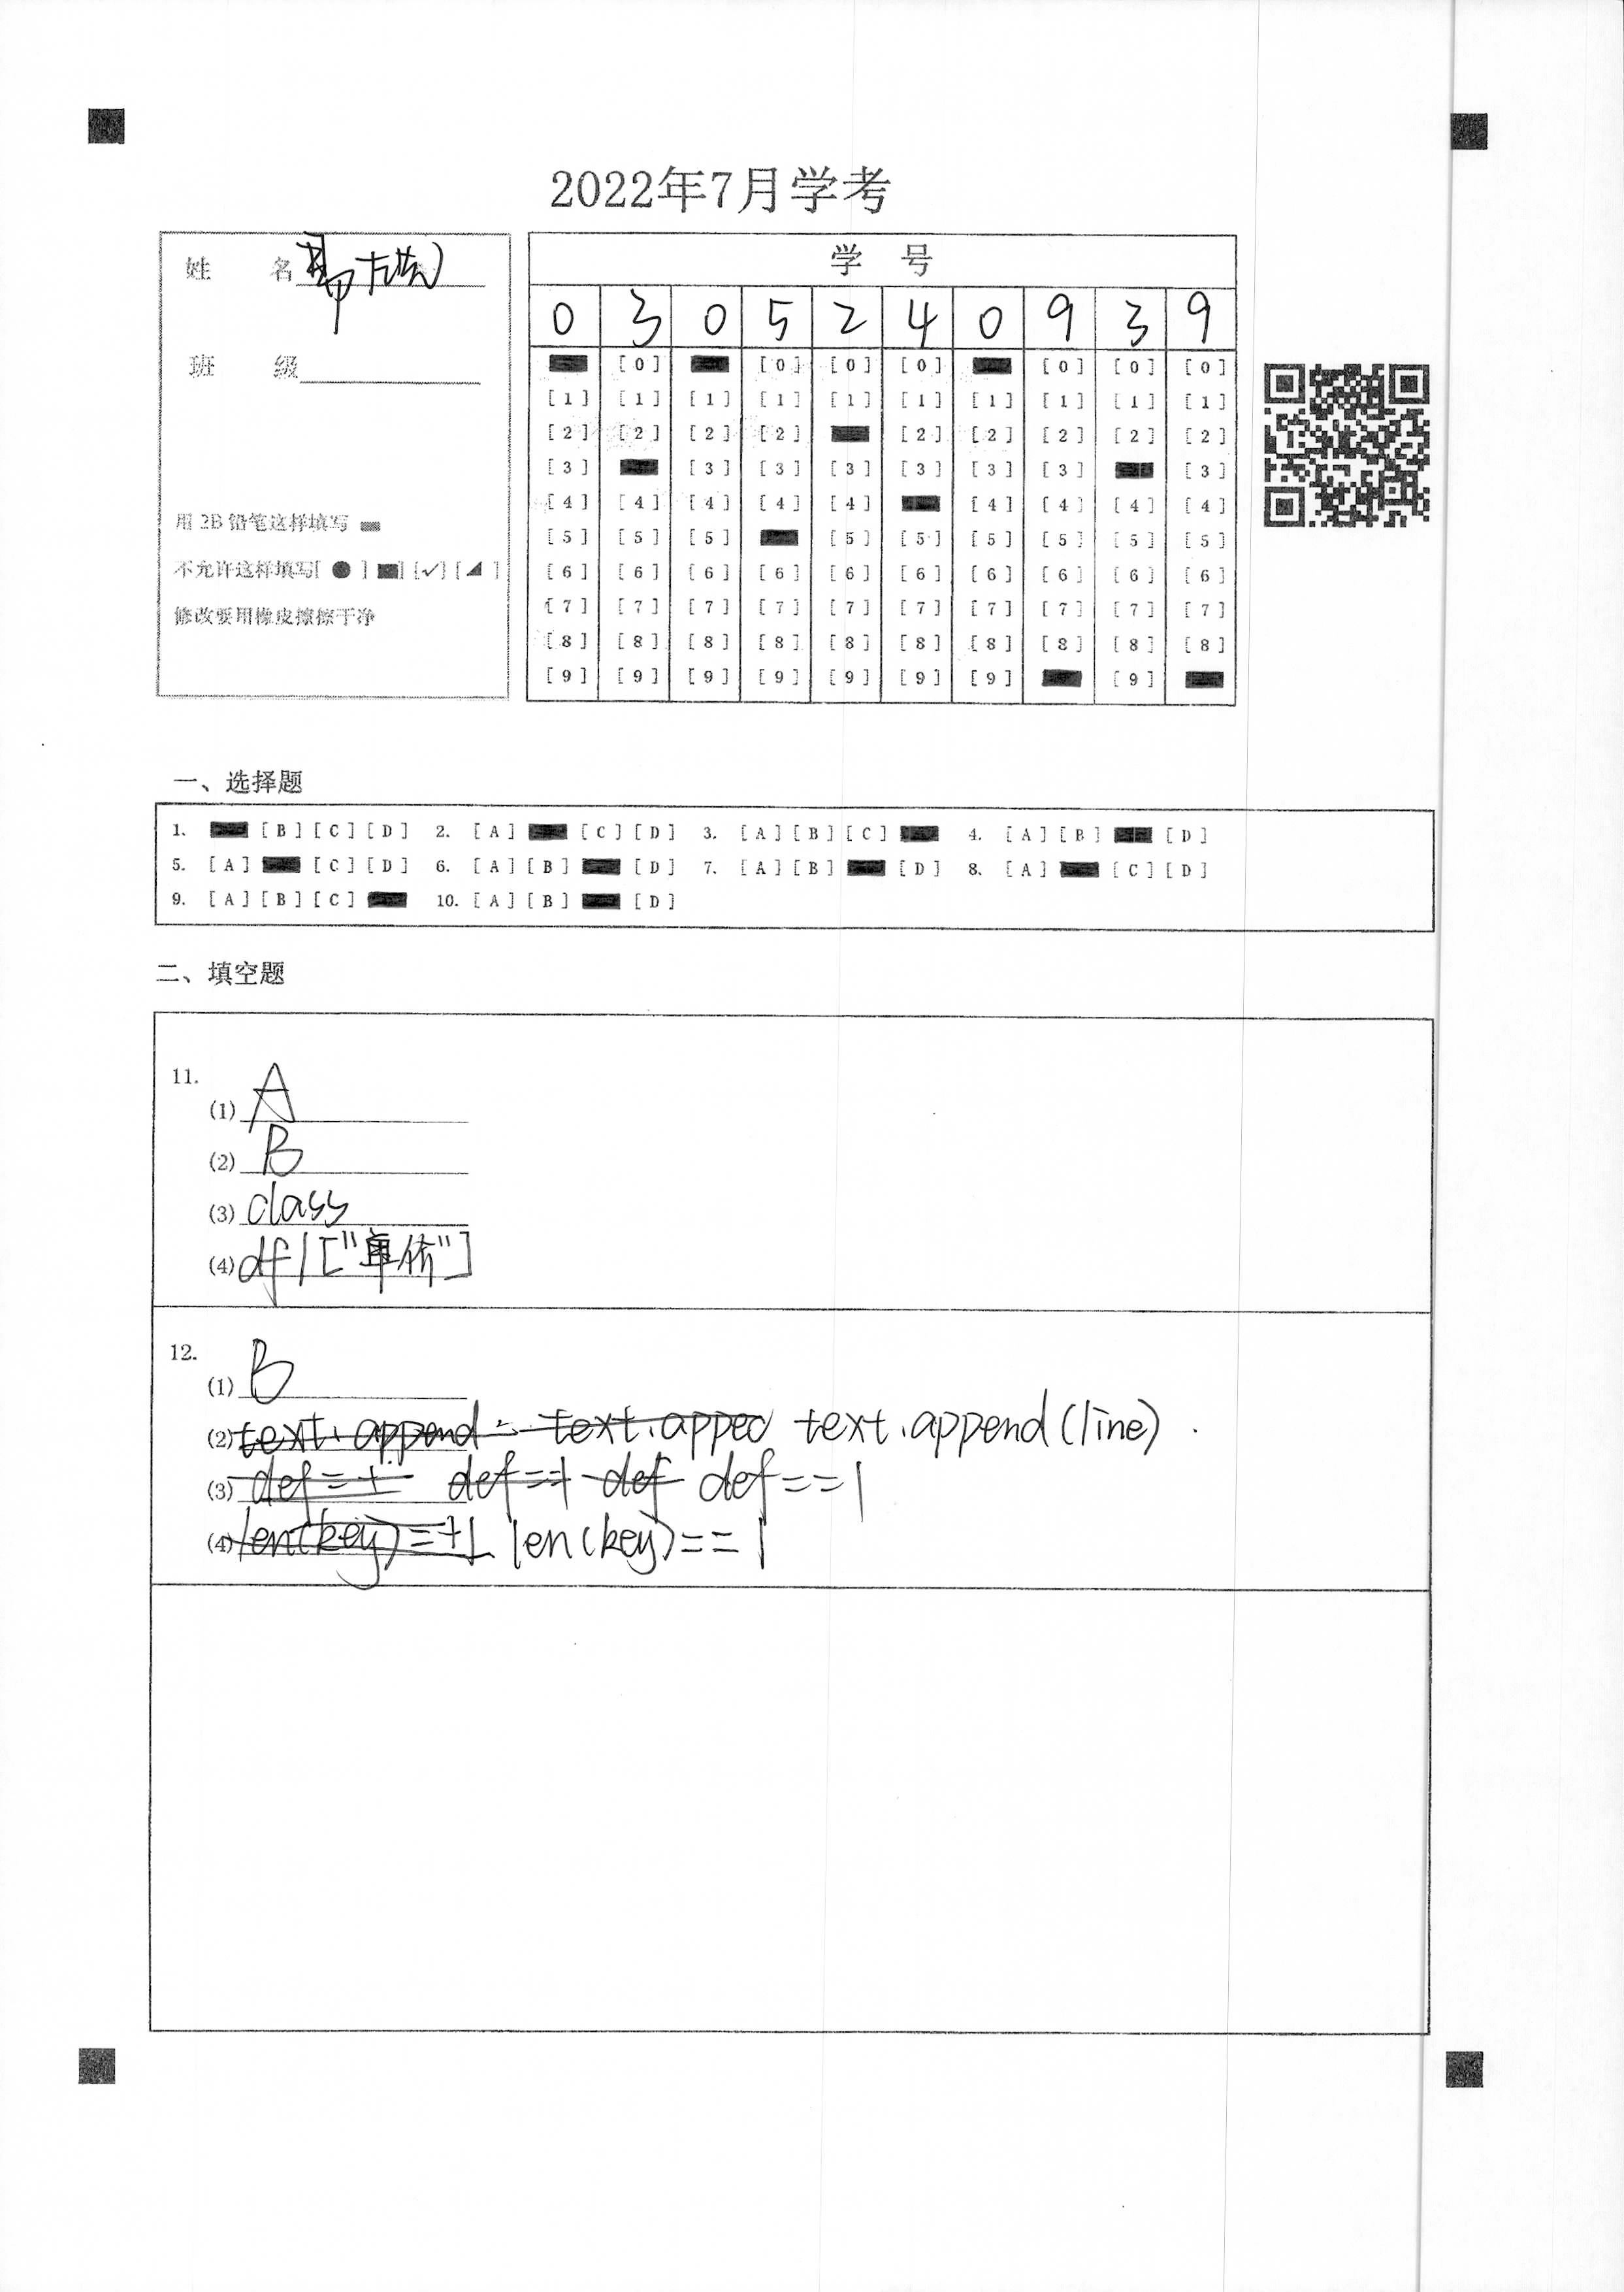 2022年7月学考
姓 名
班 级
用 2B 铅笔这样填写
不允许这样填写[ ● ] [■] [✓] [◢ ]
修改要用橡皮擦擦干净
学 号
0 3 0 5 2 4 0 9 3 9
[0] [0] [0] [0] [0] [0] [0]
[1] [1] [1] [1] [1] [1] [1] [1] [1] [1]
[2] [2] [2] [2] [2] [2] [2] [2] [2]
[3] [3] [3] [3] [3] [3] [3] [3]
[4] [4] [4] [4] [4] [4] [4] [4] [4]
[5] [5] [5] [5] [5] [5] [5] [5] [5]
[6] [6] [6] [6] [6] [6] [6] [6] [6] [6]
[7] [7] [7] [7] [7] [7] [7] [7] [7] [7]
[8] [8] [8] [8] [8] [8] [8] [8] [8] [8]
[9] [9] [9] [9] [9] [9] [9] [9]
一、选择题
1. [B] [C] [D] 2. [A] [C] [D] 3. [A] [B] [C] 4. [A] [B] [D]
5. [A] [C] [D] 6. [A] [B] [D] 7. [A] [B] [D] 8. [A] [C] [D]
9. [A] [B] [C] 10. [A] [B] [D]
二、填空题
11.
(1) A
(2) B
(3) class
(4) df1["单价"]
12.
(1) B
(2) text.append text.apped text.append(line)
(3) def=+ def=+1 def def==1
(4) len(key)=+1 len(key)==1